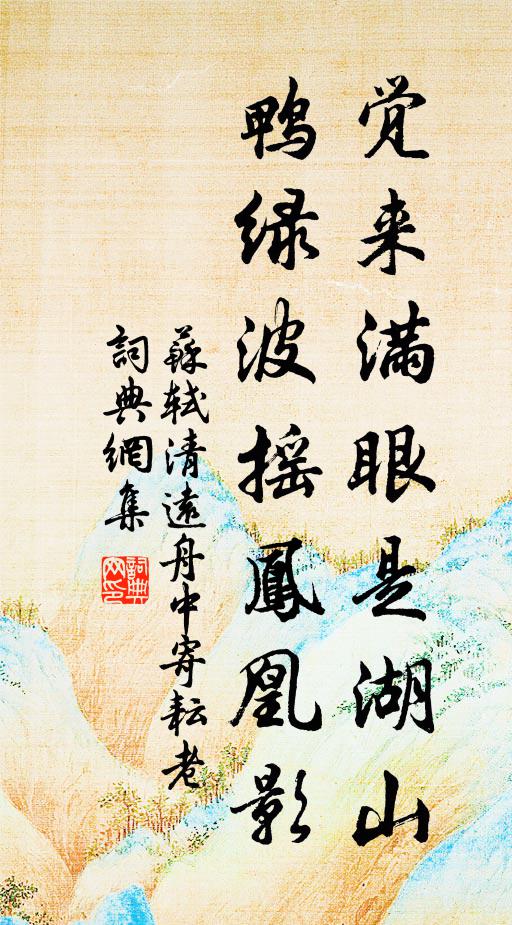 覚来満眼是湖山
鴨緑波摇鳳凰影
蘇軾清遠舟中寄耘老
詞典網集
詞典网印